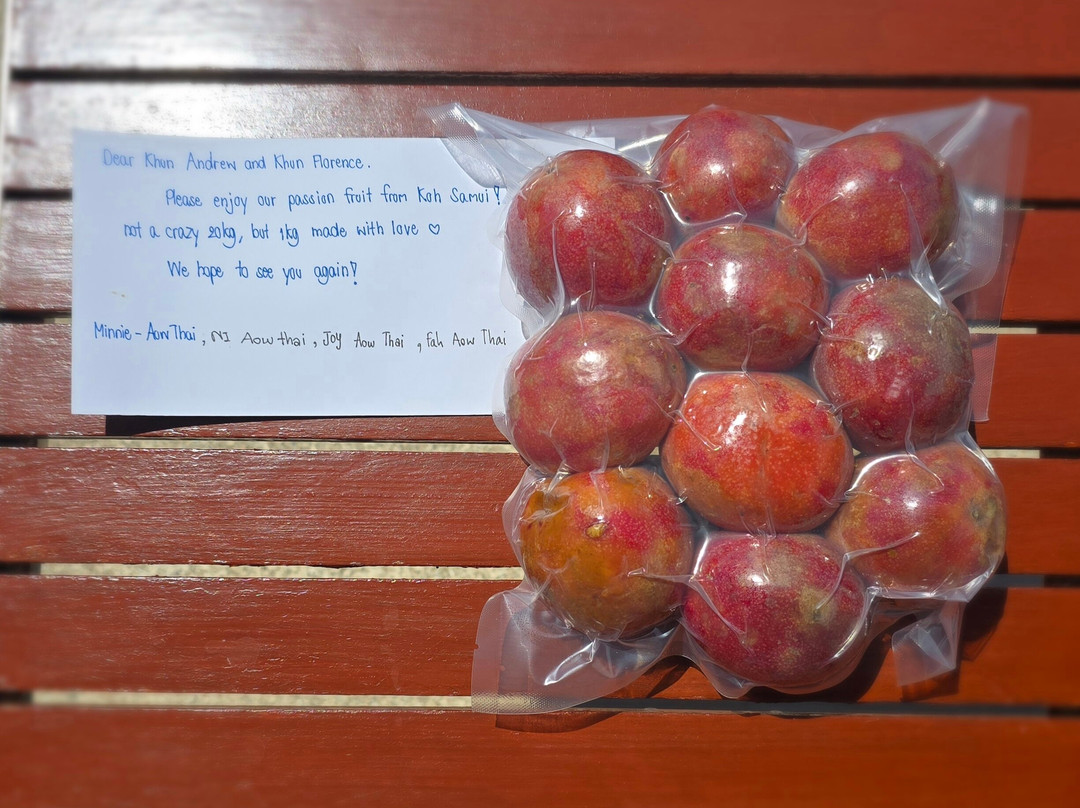 Dear Khun Andrew and Khun Florence.
Please enjoy our passion fruit from Koh Samui!
not a crazy 20kg, but 1kg made with love ♡
We hope to see you again!
Minnie - Aow Thai, NI Aow thai, Joy Aow Thai, Fah Aow Thai